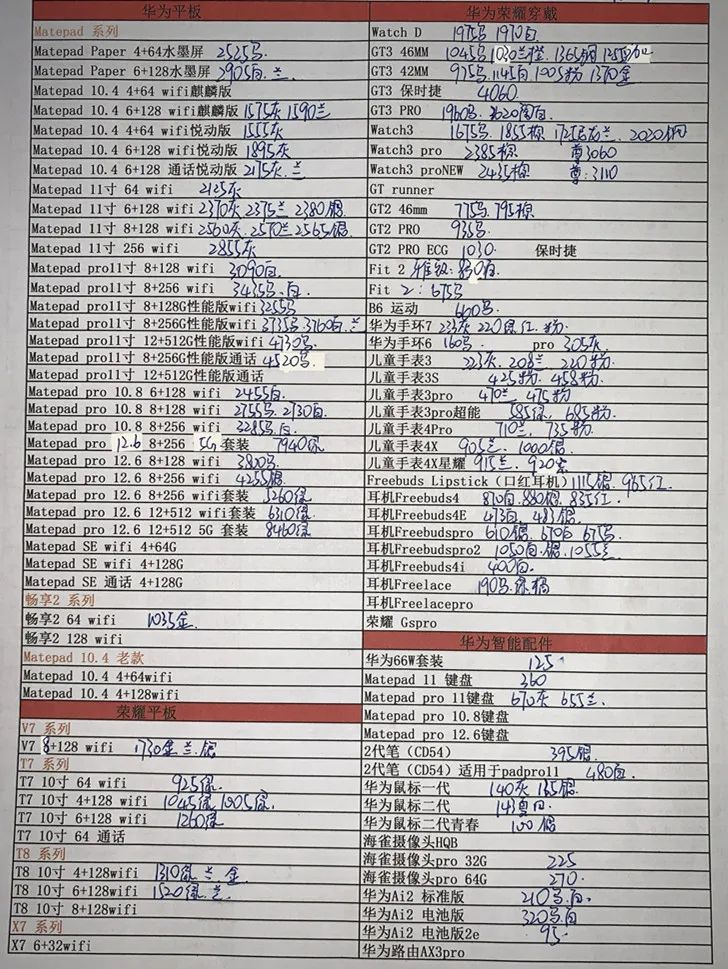 华为平板
Matepad 系列
Matepad Paper 4+64水墨屏 2525黑
Matepad Paper 6+128水墨屏 2905白.兰
Matepad 10.4 4+64 wifi麒麟版
Matepad 10.4 6+128 wifi麒麟版 1575灰 1590兰
Matepad 10.4 4+64 wifi悦动版 1555灰
Matepad 10.4 6+128 wifi悦动版 1895灰
Matepad 10.4 6+128 通话悦动版 2175灰.兰
Matepad 11寸 64 wifi 2125灰
Matepad 11寸 6+128 wifi 2370灰 2375兰 2380银
Matepad 11寸 8+128 wifi 2560灰 2570兰 2565银
Matepad 11寸 256 wifi 2855灰
Matepad pro11寸 8+128 wifi 3090白.
Matepad pro11寸 8+256 wifi 3435黑.白.
Matepad pro11寸 8+128G性能版wifi 3255黑
Matepad pro11寸 8+256G性能版wifi 3735黑 3760白.兰
Matepad pro11寸 12+512G性能版wifi 4730黑.
Matepad pro11寸 8+256G性能版通话 4520黑.
Matepad pro11寸 12+512G性能版通话
Matepad pro 10.8 6+128 wifi 2455白.
Matepad pro 10.8 8+128 wifi 2755黑.2730白
Matepad pro 10.8 8+256 wifi 3285黑.白
Matepad pro 12.6 8+256 5G 套装 7940绿
Matepad pro 12.6 8+128 wifi 3800黑.
Matepad pro 12.6 8+256 wifi 4255银
Matepad pro 12.6 8+256 wifi套装 5260绿
Matepad pro 12.6 12+512 wifi套装 6310绿
Matepad pro 12.6 12+512 5G 套装 8460绿
Matepad SE wifi 4+64G
Matepad SE wifi 4+128G
Matepad SE 通话 4+128G
畅享2 系列
畅享2 64 wifi 1035金
畅享2 128 wifi
Matepad 10.4 老款
Matepad 10.4 4+64wifi
Matepad 10.4 4+128wifi
荣耀平板
V7 系列
V7 8+128 wifi 1730金 兰.银
T7 系列
T7 10寸 64 wifi 925绿.
T7 10寸 4+128 wifi 1045绿 1005绿.
T7 10寸 6+128 wifi 1260绿
T7 10寸 64 通话
T8 系列
T8 10寸 4+128wifi 1310绿 兰 金
T8 10寸 6+128wifi 1520绿.兰.
T8 10寸 8+128wifi
X7 系列
X7 6+32wifi
华为荣耀穿戴
Watch D 1975黑 1970白
GT3 46MM 1045黑 1030兰棕. 1365钢
GT3 42MM 975黑 1145白 1005粉 1370金
GT3 保时捷 4060
GT3 PRO 1960黑
Watch3 1675黑 1855棕 2020钢
Watch3 pro 2385棕 尊3060
Watch3 proNEW 2435棕 尊:3110
GT runner
GT2 46mm 775黑.795棕
GT2 PRO 935黑
GT2 PRO ECG 1030 保时捷
Fit 2 雅致:830白
Fit 2:675黑
B6 运动 660黑
华为手环7 233灰 220绿.红.粉
华为手环6 160黑 pro 305灰
儿童手表3 223灰.208兰 220粉
儿童手表3S 425粉 458粉
儿童手表3pro 470兰 475粉
儿童手表3pro超能 585绿 685粉
儿童手表4Pro 710兰 735粉
儿童手表4X 905兰 1000银
儿童手表4X星耀 915兰 920
Freebuds Lipstick(口红耳机) 1115银 965红
耳机Freebuds4 870白.880银 835红.
耳机Freebuds4E 473白 483银
耳机Freebudspro 610银 670白 675黑
耳机Freebudspro2 1050白.银.1055兰
耳机Freebuds4i 400白
耳机Freelace 190黑.绿 橘
耳机Freelacepro
荣耀 Gspro
华为智能配件
华为66W套装 125
Matepad 11 键盘 360
Matepad pro 11键盘 670灰 655兰
Matepad pro 10.8键盘
Matepad pro 12.6键盘
2代笔(CD54) 395银
2代笔(CD54)适用于padpro11 480白
华为鼠标一代 140灰 135银
华为鼠标二代 143
华为鼠标二代青春 100银
海雀摄像头HQB
海雀摄像头pro 32G 225
海雀摄像头pro 64G 270
华为Ai2 标准版 210黑.白.
华为Ai2 电池版 320黑.白
华为Ai2 电池版2e 95
华为路由AX3pro